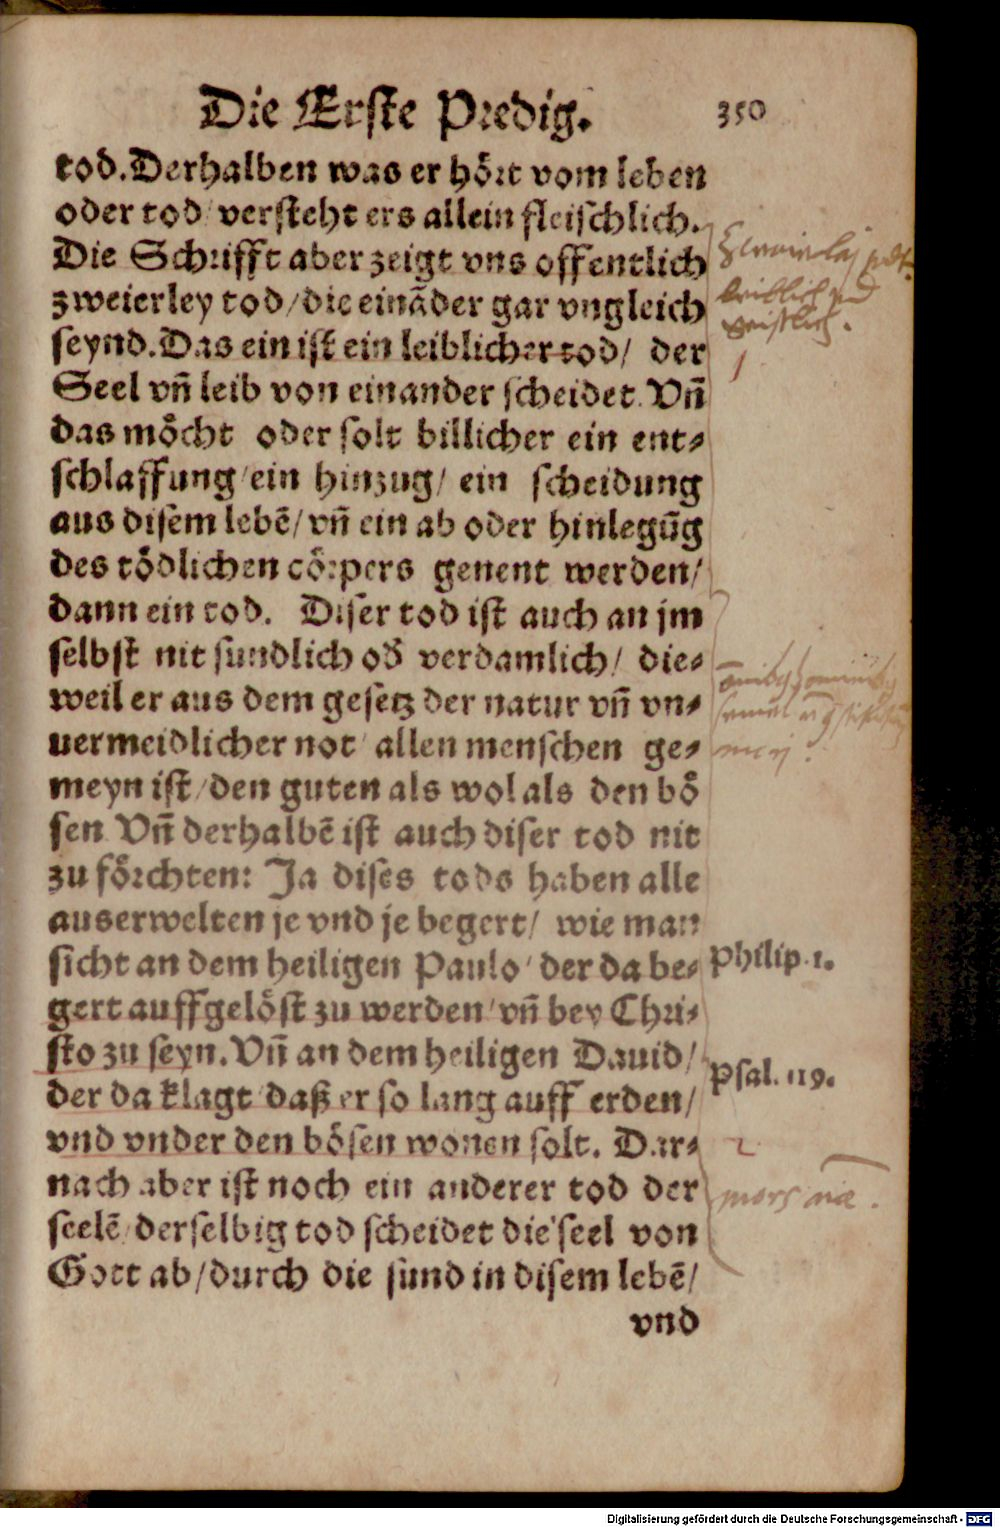 Die Erste Predig. 350
tod. Derhalben was er hört vom leben
oder tod / versteht ers allein fleischlich.
Die Schrifft aber zeigt vns offentlich
zweierley tod / die einãder gar vngleich
seynd. Das ein ist ein leiblicher tod / der
Seel vñ leib von einander scheidet. Vñ
das möcht oder solt billicher ein ent⸗
schlaffung / ein hinzug / ein scheidung
aus disem lebẽ / vñ ein ab oder hinlegũg
des tödlichen cörpers genent werden /
dann ein tod. Diser tod ist auch an jm
selbst nit sundlich od̕ verdamlich / die⸗
weil er aus dem gesetz der natur vñ vn⸗
uermeidlicher not / allen menschen ge⸗
meyn ist / den guten als wol als den bö
sen. Vñ derhalbẽ ist auch diser tod nit
zu förchten: Ja dises tods haben alle
auserwelten je vnd je begert / wie man
sicht an dem heiligen Paulo / der da be⸗
gert auffgelöst zu werden / vñ bey Chri⸗
sto zu seyn. Vñ an dem heiligen Dauid /
der da klagt daß er so lang auff erden /
vnd vnder den bösen wonen solt. Dar⸗
nach aber ist noch ein anderer tod der
seelẽ / derselbig tod scheidet die seel von
Gott ab / durch die sund in disem lebẽ /
vnd
leiblich vnd
geistlich.
1
Philip. 1.
Psal. 119.
2
mors
Digitalisierung gefördert durch die Deutsche Forschungsgemeinschaft - DFG